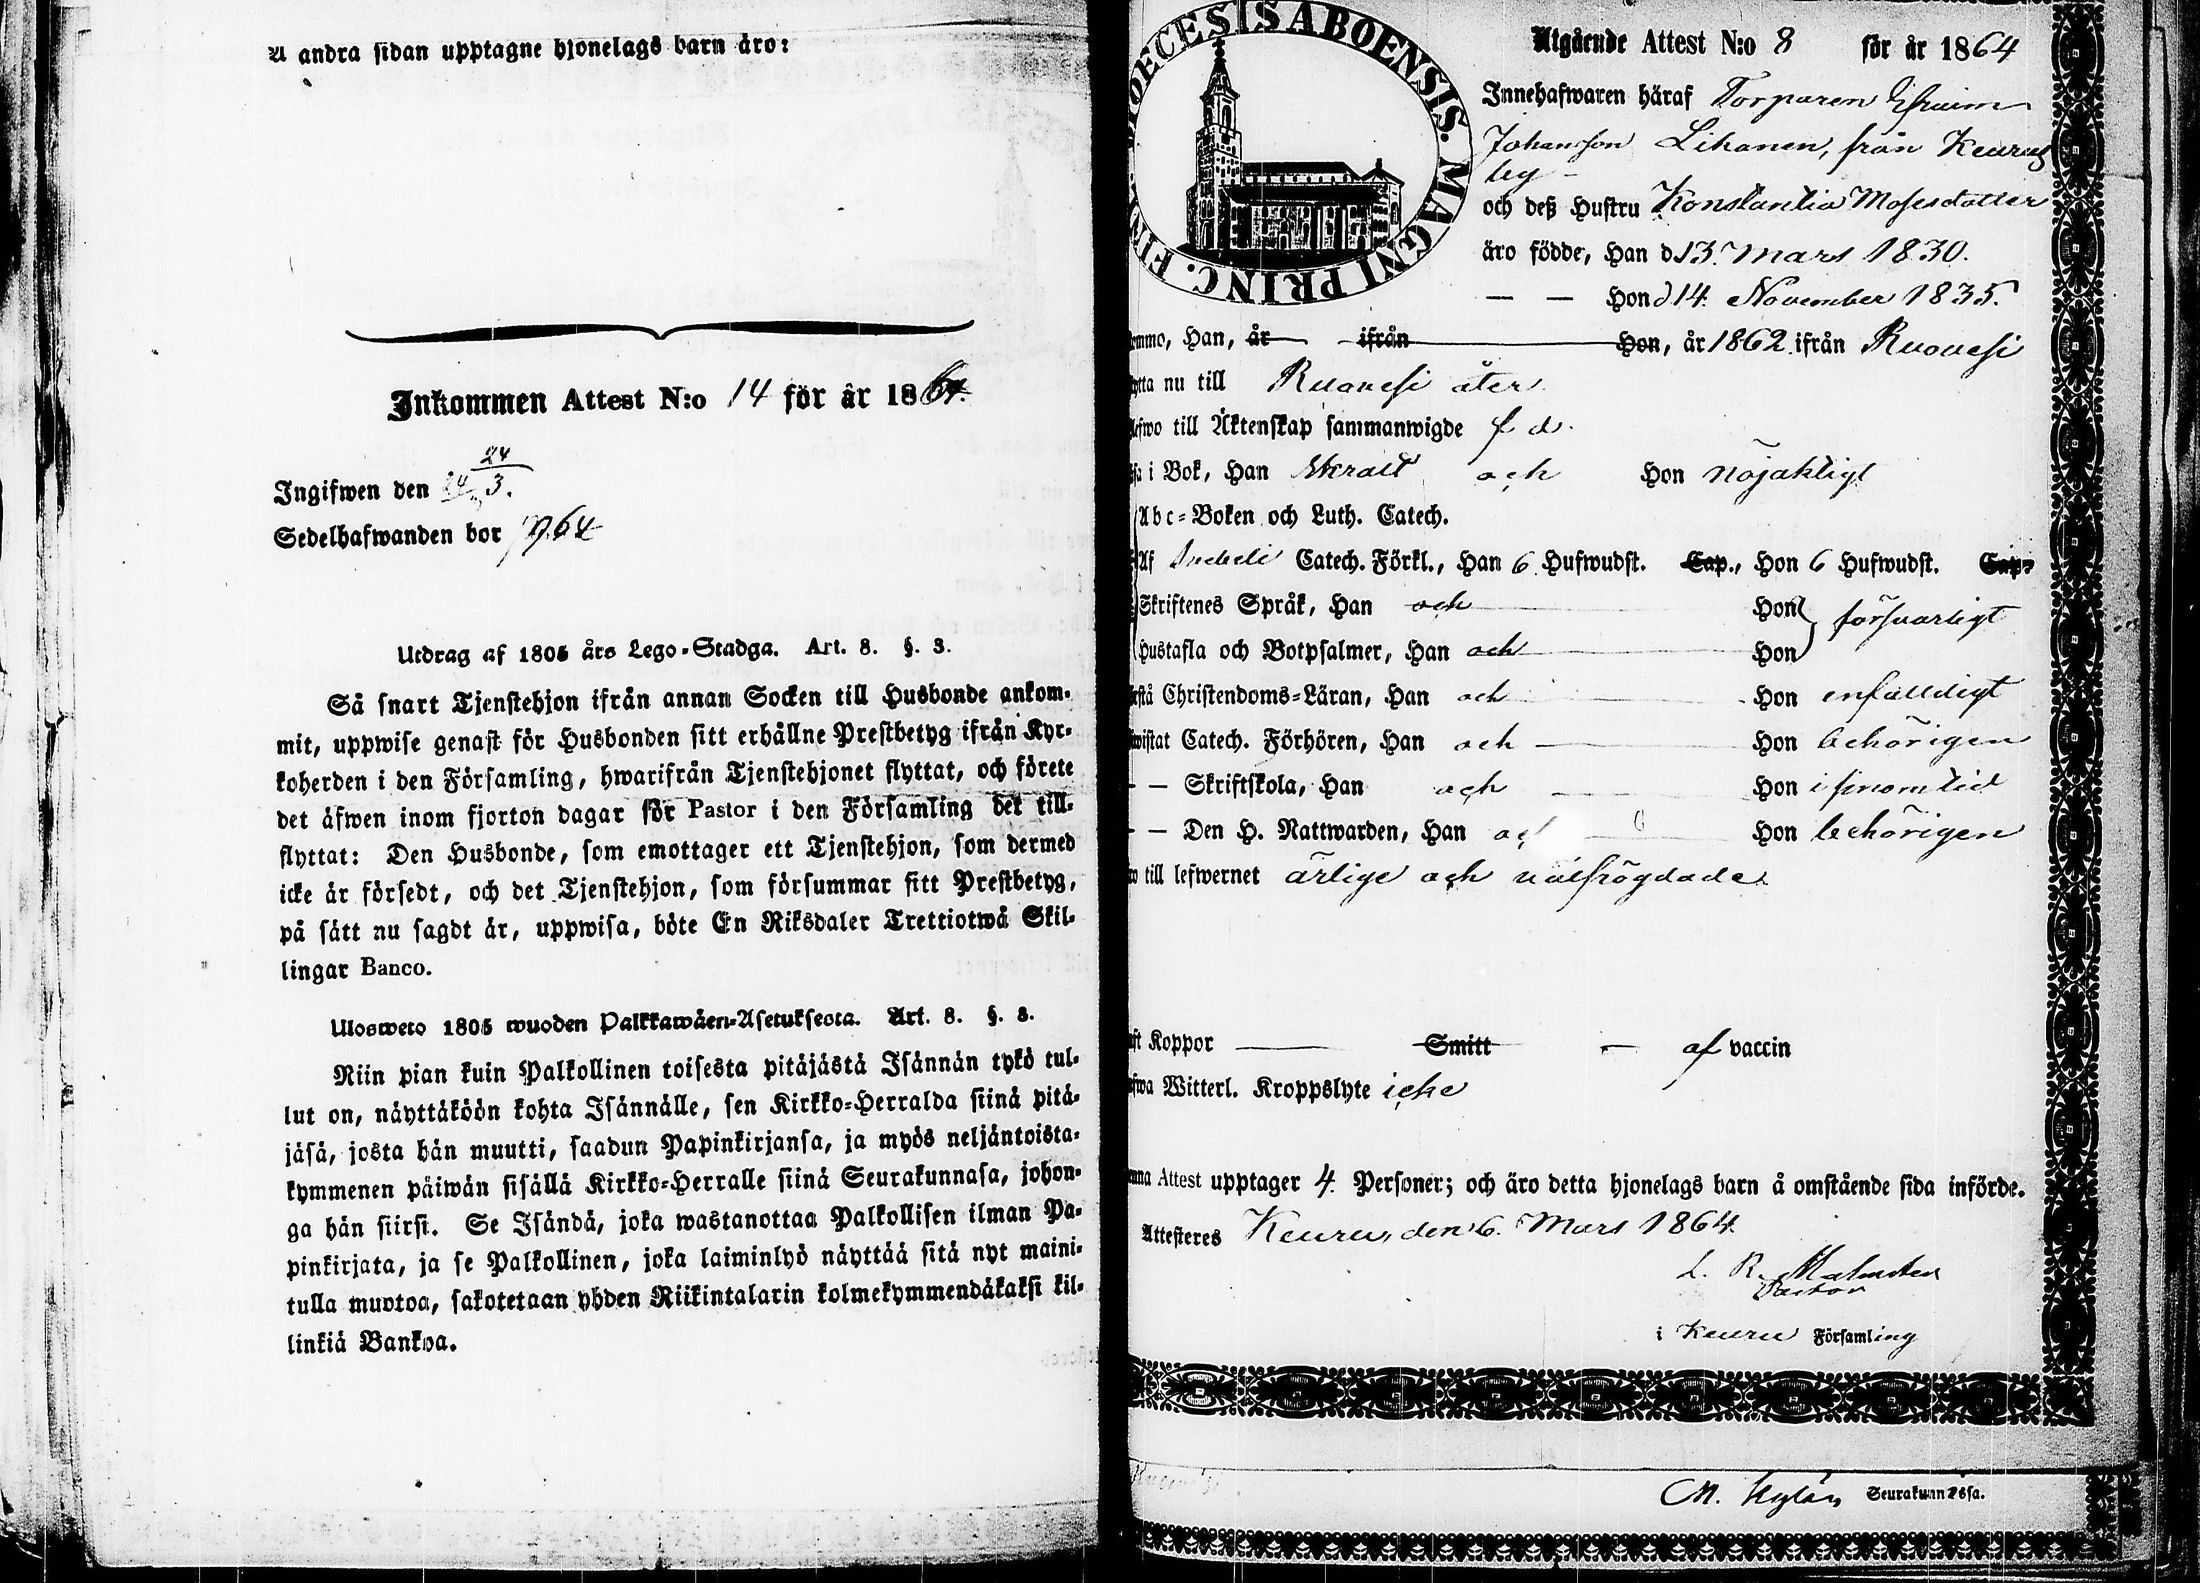 å andra sidan upptagne hjonelags barn äro:
Inkommen Attest N:o 14 för år 1864.
Ingifwen den 24/3.
Sedelhafwanden bor p. 64
Utdrag af 1805 års Lego-Stadga. Art. 8. §. 3.
Så snart Tjenstehjon ifrån annan Socken till Husbonde ankom-
mit, uppwise genast för Husbonden sitt erhållne Prestbetyg ifrån Kyr-
koherden i den Församling, hwarifrån Tjenstehjonet flyttat, och förete
det äfwen inom fjorton dagar för Pastor i den Församling det till-
flyttat: Den Husbonde, som emottager ett Tjenstehjon, som dermed
icke är försedt, och det Tjenstehjon, som försummar sitt Prestbetyg,
på sätt nu sagdt är, uppwisa, böte En Riksdaler Trettiotwå Skil-
lingar Banco.
Ulosweto 1805 wuoden Palkkawäen-Asetuksesta. Art. 8. §. 3.
Niin pian kuin Palkollinen toisesta pitäjästä Isännän tykö tul-
lut on, näyttäköön kohta Isännälle, sen Kirkko-Herralda siinä pitä-
jäsä, josta hän muutti, saadun Papinkirjansa, ja myös neljäntoista-
kymmenen päiwän sisällä Kirkko-Herralle siinä Seurakunnasa, johon-
ga hän siirsi. Se Isändä, joka wastanottaa Palkollisen ilman Pa-
pinkirjata, ja se Palkollinen, joka laiminlyö näyttää sitä nyt maini-
tulla muotoa, sakotetaan yhden Riikintalarin kolmekymmendäkaksi kil-
linkiä Bankoa.
DIOECESIS ABOENSIS. MAGNI PRINC. FIN
Utgående Attest N:o 8 för år 1864
Innehafwaren häraf Torparen Efraim
Johansson Likanen, från Keuru
by
och deß Hustru Konstantia Mosesdotter
äro födde, Han d 13. Mars 1830.
— — Hon d 14. November 1835.
ommo, Han, år ifrån Hon, år 1862 ifrån Ruovesi
ytta nu till Ruovesi åter
lefwo till Äktenskap sammanwigde f. d.
äsa i Bok, Han Skralt och Hon nöjaktigt
Abc-Boken och Luth. Catech.
Af Svebeli Catech. Förkl., Han 6 Hufwudst. Cap., Hon 6 Hufwudst. Cap.
Skriftenes Språk, Han och Hon försvarligt
Hustafla och Botpsalmer, Han och Hon
rstå Christendoms-Läran, Han och Hon enfalldigt
wistat Catech. Förhören, Han och Hon behörigen
— — Skriftskola, Han och Hon i sinom tid
— — Den H. Nattwarden, Han och Hon behörigen
wo till lefwernet ärlige och välfrägdade
aft Koppor — Smitt — af vaccin
afwa Witterl. Kroppslyte icke
enna Attest upptager 4. Personer; och äro detta hjonelags barn å omstående sida införde.
Attesteres Keuru, den 6. Mars 1864.
L. R. Malmsten
Pastor
i Keuru Församling
Seurakunnasa.